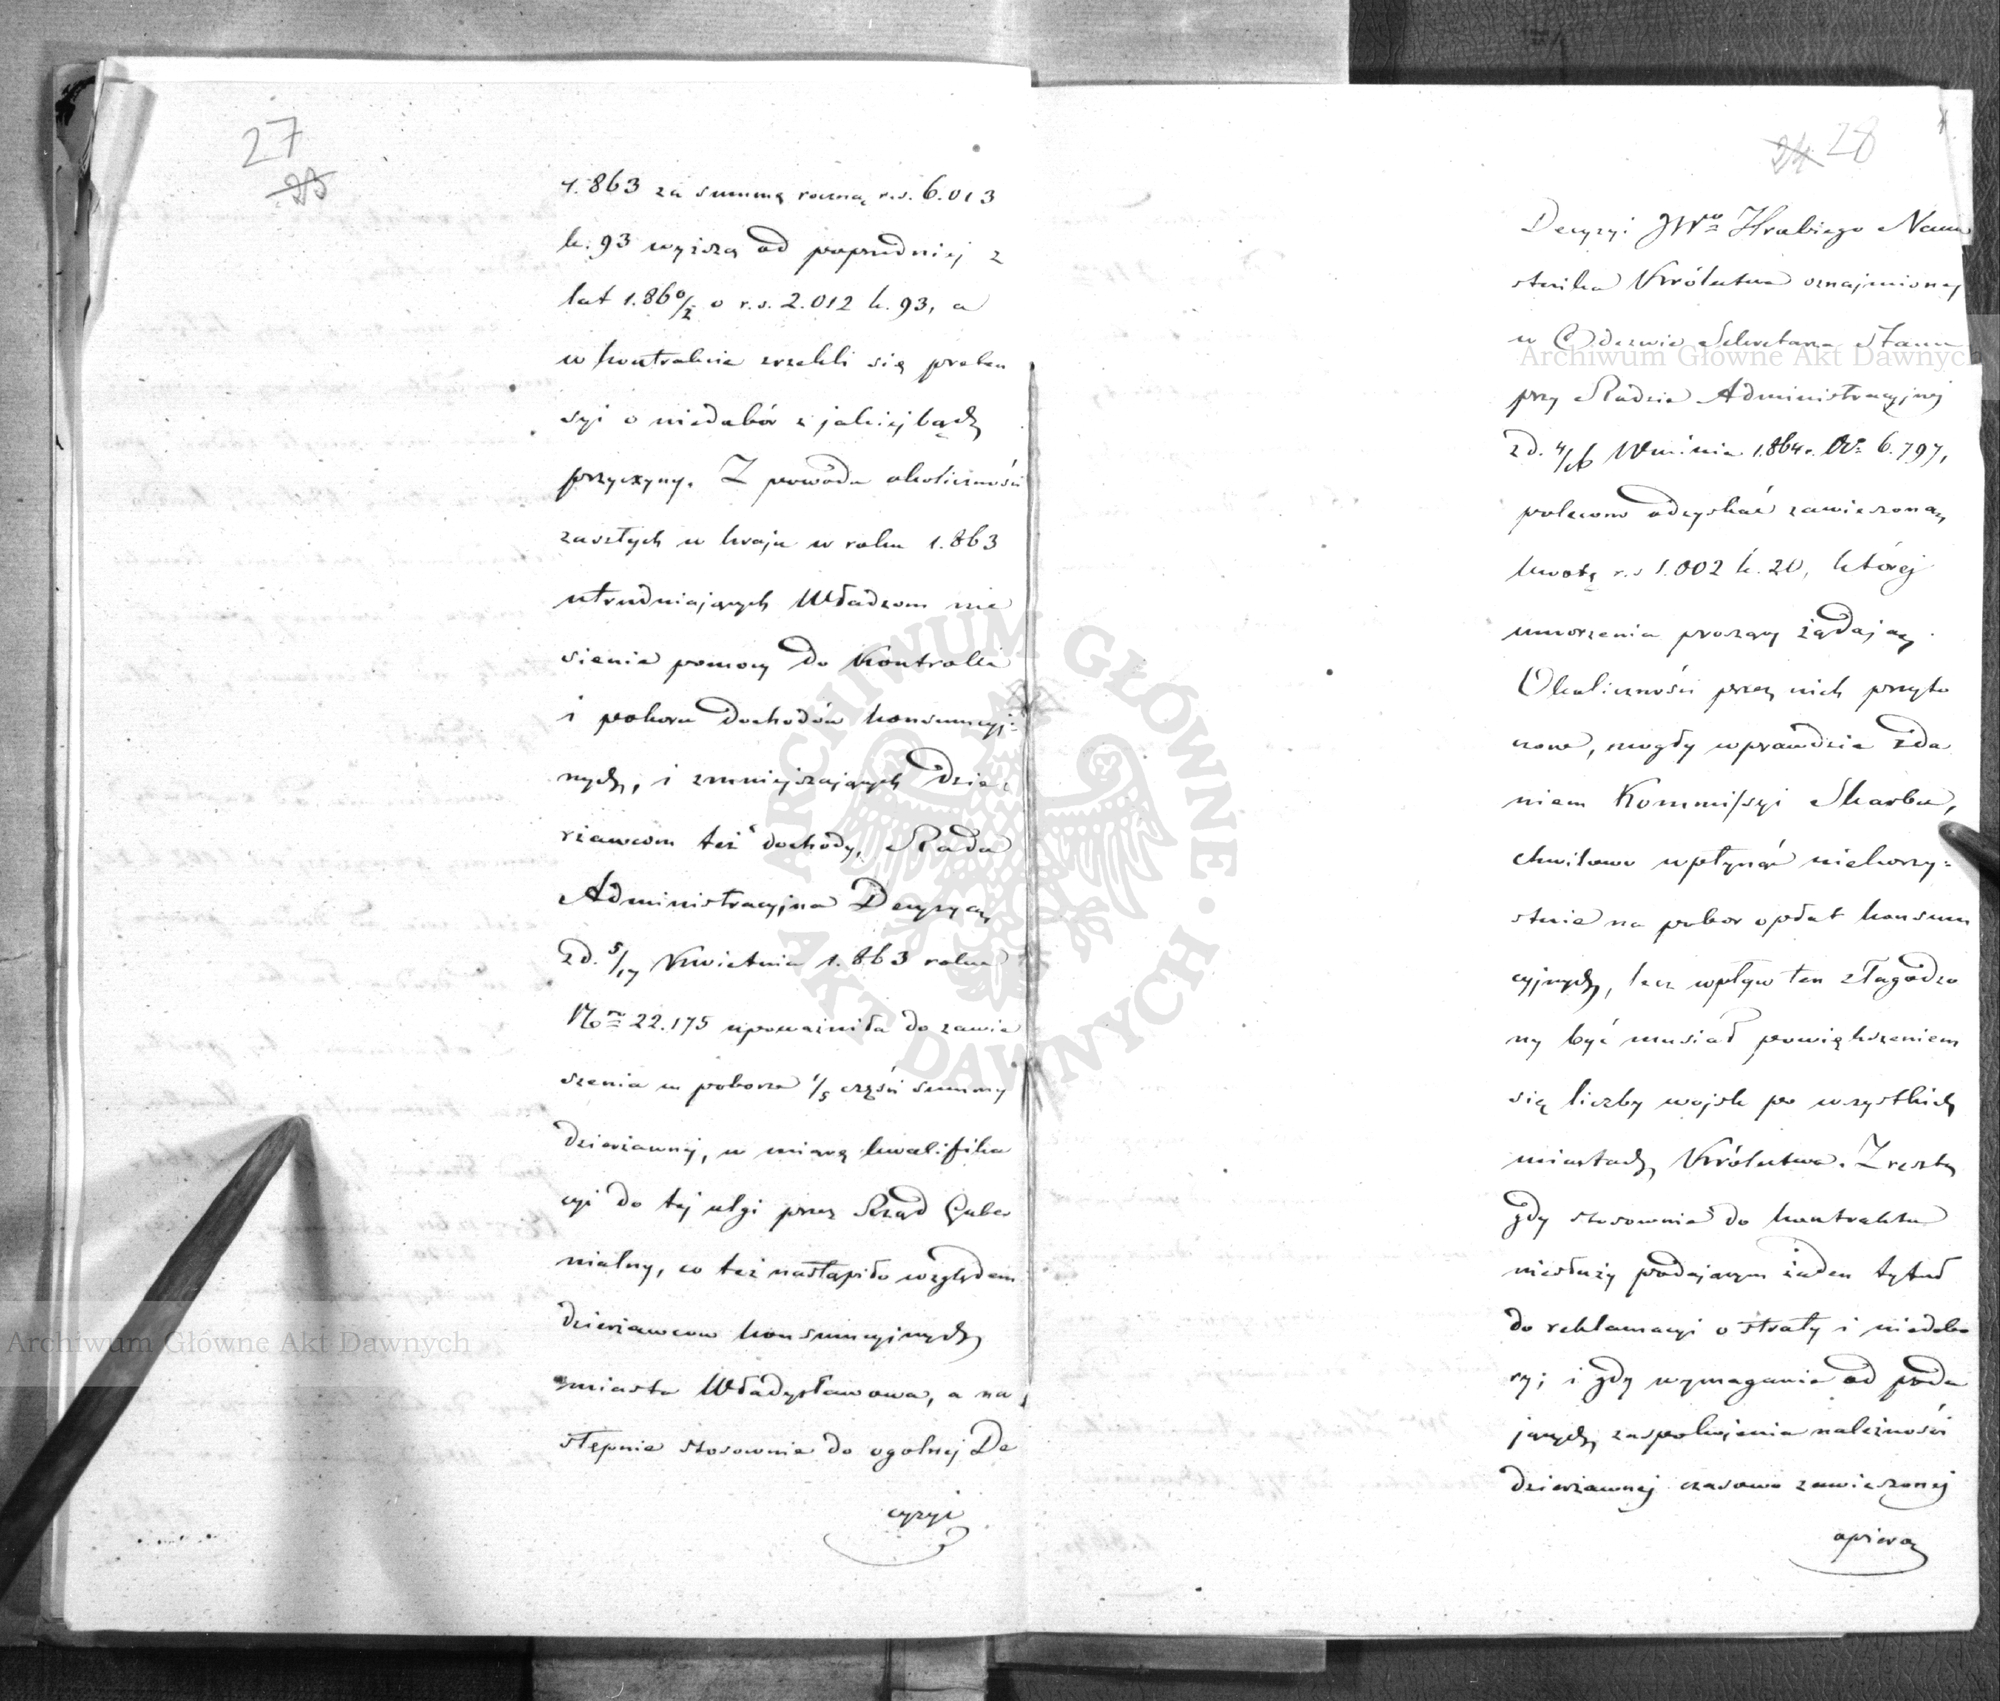 27
23
1.863 za summę roczną r.s. 6.013
k. 93 wyższą od poprzedniej z
lat 1.860/2 o r.s. 2.012 k. 93, a
w kontrakcie zrzekli się preten
syi o niedobór z jakiejbądź
przyczyny. Z powodu okoliczności
zaszłych w kraju w roku 1.863
utrudniających Władzom nie
sienie pomocy do Kontrolli
i poboru dochodów konsumcyj=
nych, i zmniejszających dzie=
rżawcom też dochody, Rada
Administracyjna Decyzyą
z d. 5/17 Kwietnia 1.863 roku
No 22.175 upoważniła do zawie
szenia w poborze 1/5 części summy
dzierżawnej, w miarę kwalifika
cyi do tej ulgi przez Rząd Guber
nialny, co też nastąpiło względem
dzierżawcow konsumcyjnych
miasta Władysławowa, a na
stępnie stosownie do ogolnej De
cyzyi
24 28
Decyzyi JWo Hrabiego Namie
stnika Królestwa oznajmionej
w Odezwie Sekretarza Stanu
przy Radzie Administracyjnej
z d. 4/16 Września 1.864 r. No 6.797,
polecono odzyskać zawieszoną
kwotę r.s 1.002 k. 20, której
umorzenia proszący żądają.
Okoliczności przez nich przyto
czone, mogły wprawdzie zda
niem Kommissyi Skarbu,
chwilowo wpłynąć niekorzy=
stnie na pobor opłat konsum
cyjnych, lecz wpływ ten złagodzo
ny być musiał powiększeniem
się liczby wojsk po wszystkich
miastach Królestwa. Zresztą
gdy stosownie do kontraktu
niesłuży podającym żaden tytuł
do reklamacyi o straty i niedobo
ry; i gdy wymagania od poda
jących zaspokojenia należności
dzierżawnej czasowo zawieszonej
opiera
Archiwum Główne Akt Dawnych
Archiwum Główne Akt Dawnych
ARCHIWUM GŁÓWNE • AKT DAWNYCH •